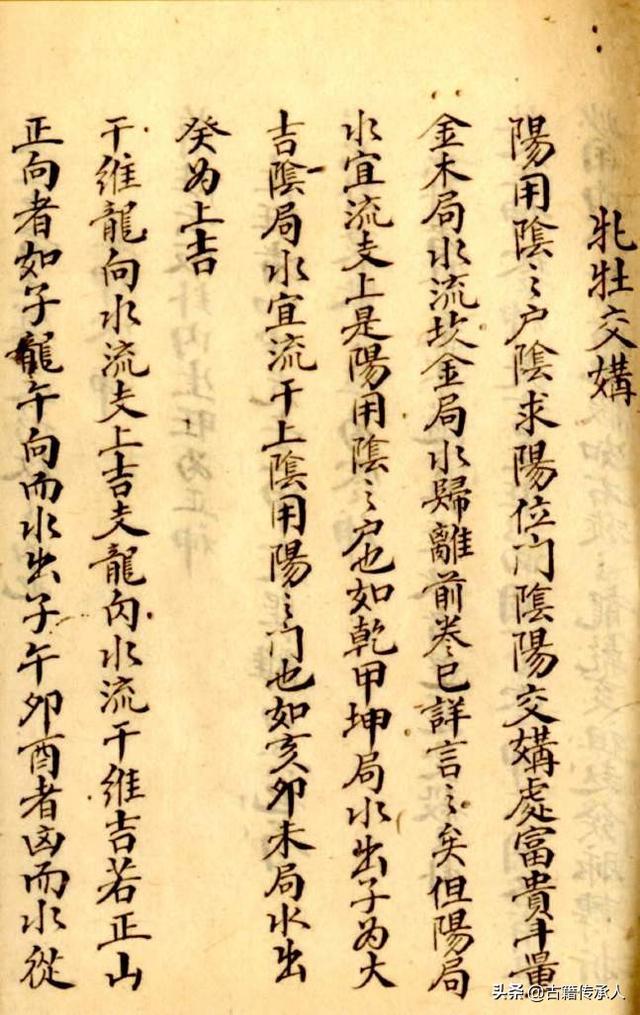 牝牡交媾
陽用陰之户陰求陽位門陰陽交媾處富貴斗量
金木局水流坎金局水歸離前卷已詳言之矣但陽局
水宜流支上是陽用陰之户也如乾甲坤局水出子為大
吉陰局水宜流干上陰用陽之门也如亥卯未局水出
癸为上吉
干維龍向水流支上吉支龍向水流干維吉若正山
正向者如子龍午向而水出子午卯酉者凶而水從
头条 @古籍传承人